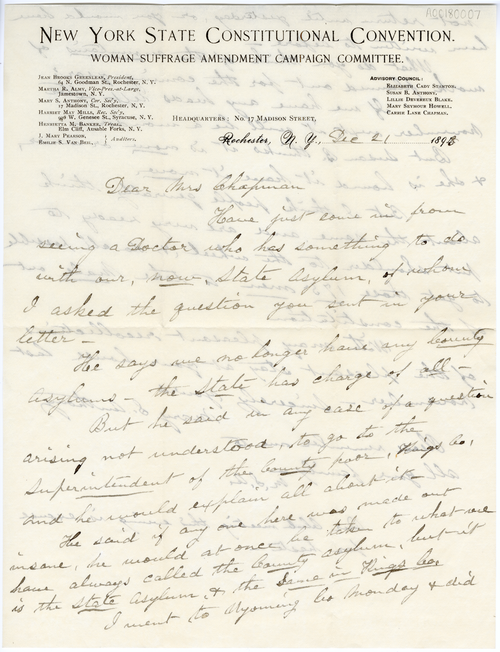 A00180007
NEW YORK STATE CONSTITUTIONAL CONVENTION.
WOMAN SUFFRAGE AMENDMENT CAMPAIGN COMMITTEE.
JEAN BROOKS GREENLEAF, President,
64 N. Goodman St., Rochester, N. Y.
MARTHA R. ALMY, Vice-Pres.-at-Large,
Jamestown, N. Y.
MARY S. ANTHONY, Cor. Sec'y,
17 Madison St., Rochester, N. Y.
HARRIET MAY MILLS, Rec. Sec'y,
W. Genesee St., Syracuse, N. Y.
HENRIETTA M. BANKER, Treas.,
Elm Cliff, Ausable Forks, N. Y.
J. MARY PEARSON,
EMILIE S. VAN BIEL, } Auditors.
ADVISORY COUNCIL:
ELIZABETH CADY STANTON,
SUSAN B. ANTHONY,
LILLIE DEVEREUX BLAKE,
MARY SEYMOUR HOWELL,
CARRIE LANE CHAPMAN,
HEADQUARTERS: NO. 17 MADISON STREET,
Rochester, N. Y., Dec 21 1893
Dear Mrs Chapman
Have just come in from
seeing a Doctor who has something to do
with our, now, State Asylum, of whom
I asked the question you sent in your
letter -
He says we no longer have any County
Asylums - the State has charge of all -
But he said in any case of a question
arising not understood, to go to the
Superintendent of the County poor, Kings Co,
and he would explain all about it -
He said if any one here was made out
insane, he would at once be taken to what we
have always called the County asylum, but it
is the State Asylum, & the same in Kings Co,
I went to Wyoming Co Monday & did